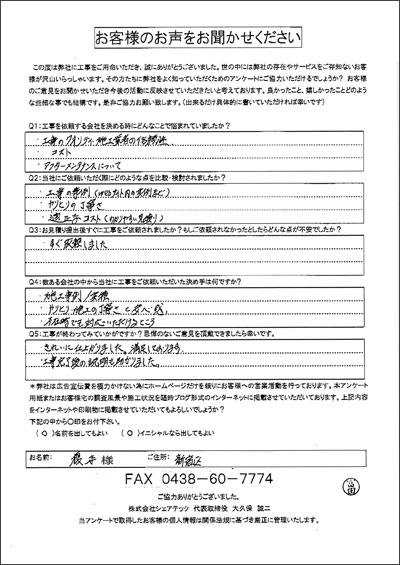 お客様のお声をお聞かせください
この度は弊社に工事をご用命いただき、誠にありがとうございました。世の中には弊社の存在やサービスをご存知ないお客
様が沢山いらっしゃいます。その方たちに弊社をよく知っていただくためのアンケートにご協力いただけるでしょうか? お客様
のご意見をお聞かせいただき今後の活動に反映させていただきたいと考えております。良かったこと、嬉しかったことどのよう
な些細な事でも結構です。是非ご協力お願い致します。(出来るだけ具体的に書いていただければ幸いです)
Q1:工事を依頼する会社を決める時にどんなことで悩まれていましたか?
・工事のクオリティ・施工業者の信頼性
・コスト
・アフターメンテナンスについて
Q2:当社にご依頼いただく際にどのような点を比較・検討されましたか?
・工事の事例
・やりとりの丁寧さ
・適正なコスト(わかりやすい見積り)
Q3:お見積り提出後すぐに工事をご依頼されましたか?もしご依頼されなかったとしたらどんな点が不安でしたか?
・すぐ依頼しました
Q4:数ある会社の中から当社に工事をご依頼いただいた決め手は何ですか?
・施工事例/実績
・やりとり、施工の丁寧さ
・不在時でも対応いただけるところ
Q5:工事が終わってみていかがですか?忌憚のないご意見を頂戴できましたら幸いです。
・きれいに仕上がりました。満足しております
・工事完了後の説明も助かりました。
*弊社は広告宣伝費を極力かけない為にホームページだけを頼りにお客様への営業活動を行っております。本アンケート
用紙またはお客様宅の調査風景や施工状況を随時ブログ形式のインターネットに掲載させていただいております。上記内容
をインターネットや印刷物に掲載させていただいてもよろしいでしょうか?
下記の中から〇印をお付下さい。
(〇)名前を出してもよい (〇)イニシャルなら出してもよい
お名前: 様 ご住所: 新宿区
FAX 0438-60-7774
ご協力ありがとうございました。
株式会社シェアテック 代表取締役 大久保 誠二
当アンケートで取得したお客様の個人情報は関係法規に基づき厳正に管理いたします。